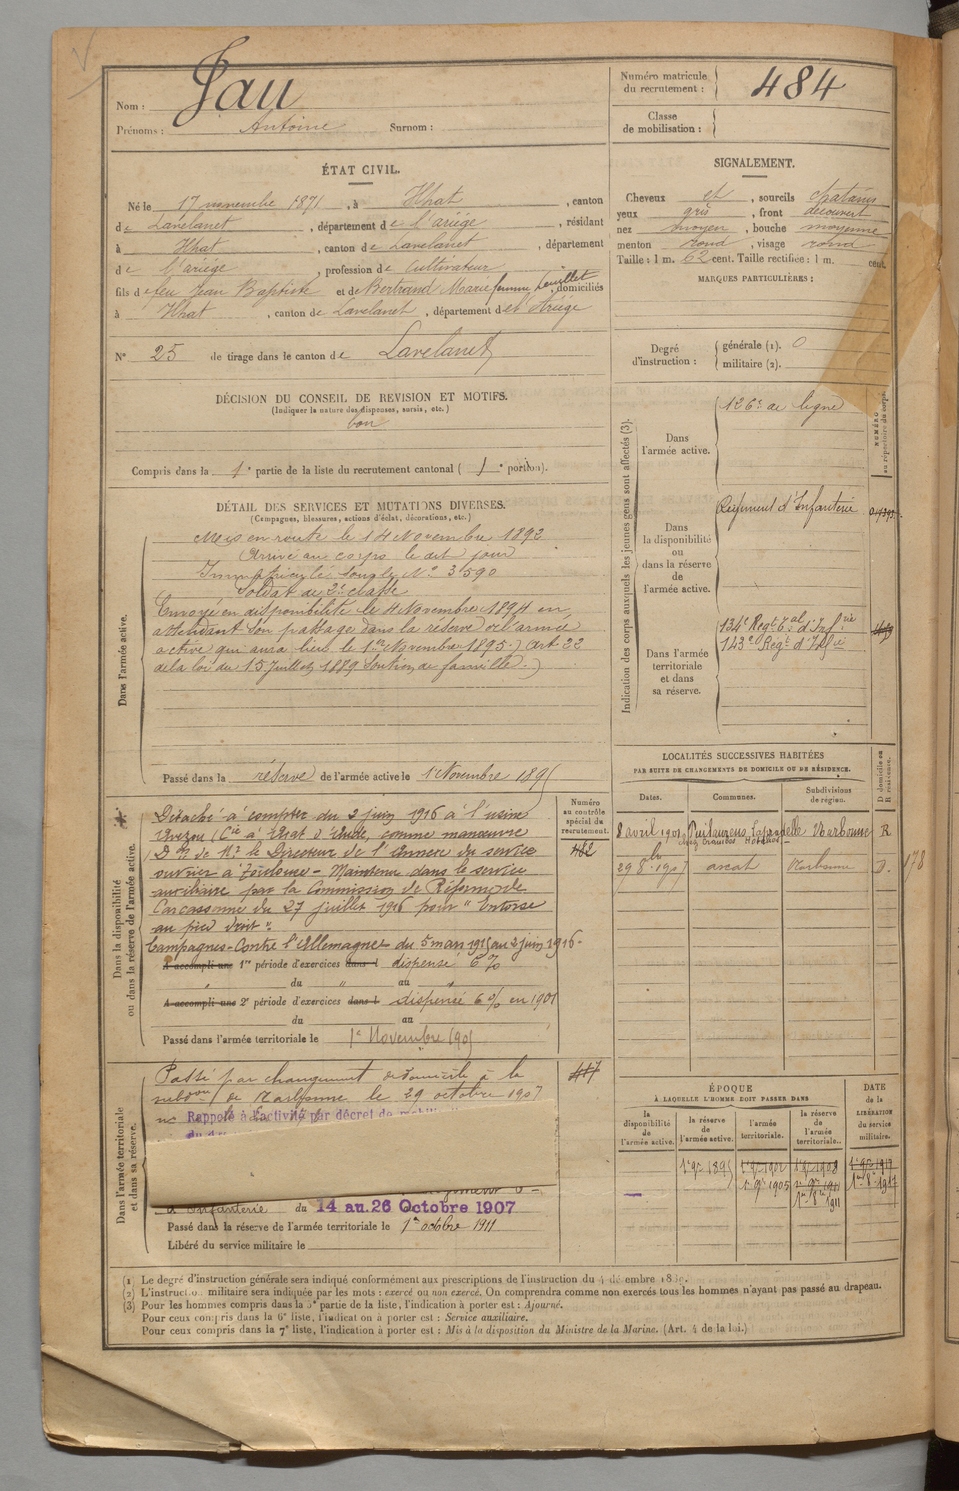 Nom : Jau
Prénoms : Antoine Surnom :
Numéro matricule du recrutement : 484
Classe de mobilisation :
ÉTAT CIVIL.
Né le 17 novembre 1871, à Ilhat, canton
de Lavelanet, département de l'ariége, résidant
à Ilhat, canton de Lavelanet, département
de l'ariége, profession de Cultivateur
fils de feu Jean Baptiste et de Bertrand Marie femme, domiciliés
à Ilhat, canton de Lavelanet, département de l'Ariége
N° 25 de tirage dans le canton de Lavelanet
SIGNALEMENT.
Cheveux et, sourcils chatains
yeux gris, front découvert
nez moyen, bouche moyenne
menton rond, visage rond
Taille : 1 m. 62 cent. Taille rectifiée : 1 m. cent.
MARQUES PARTICULIÈRES :
Degré d'instruction : générale (1). 0
militaire (2).
DÉCISION DU CONSEIL DE REVISION ET MOTIFS.
(Indiquer la nature des dispenses, sursis, etc.)
bon
Compris dans la 1e partie de la liste du recrutement cantonal (1e portion).
DÉTAIL DES SERVICES ET MUTATIONS DIVERSES.
(Campagnes, blessures, actions d'éclat, décorations, etc.)
Dans l'armée active.
Mis en route le 14 Novembre 1892
Arrivé au corps le dit jour
Immatriculé sous le N° 3590
Soldat de 2e classe
Envoyé en disponibilité le 4 Novembre 1894 en
attendant son passage dans la réserve de l'armée
active qui aura lieu le 1er Novembre 1895. (art 22
de la loi du 15 Juillet 1889 Soutien de famille.)
Passé dans la réserve de l'armée active le 1 Novembre 1895
Indication des corps auxquels les jeunes gens sont affectés (3).
Dans l'armée active.
126e de ligne
NUMÉRO au répertoire du corps.
Dans la disponibilité ou dans la réserve de l'armée active.
Régiment d'Infanterie
Dans l'armée territoriale et dans sa réserve.
134e Regt Tal d'Infrie
143e Regt d'Infie
LOCALITÉS SUCCESSIVES HABITÉES
PAR SUITE DE CHANGEMENTS DE DOMICILE OU DE RÉSIDENCE.
Dates. Communes. Subdivisions de région. D domicile ou R résidence.
8 avril 1901 Puilaurens, Lapradelle Narbonne R
29 8bre 1907 axat Narbonne D.
178
Dans la disponibilité ou dans la réserve de l'armée active.
Numéro au contrôle spécial du recrutement.
482
Détaché à compter du 2 juin 1916 à l'usine
(Cie à Axat d'Aude, comme manœuvre
Don de Mr le Directeur de l'annexe du service
ouvrier à Toulouse - Maintenu dans le service
auxiliaire par la Commission de Réforme de
Carcassonne du 27 juillet 1916 pour "Entorse
au pied droit".
Campagnes - Contre l'Allemagne du 5 mars 1915 au 2 juin 1916 -
A accompli une 1re période d'exercices dans l dispensé 6 %
du " au "
A accompli une 2e période d'exercices dans l dispensé 6 % en 1901
du au
Passé dans l'armée territoriale le 1er Novembre 1905
Dans l'armée territoriale et dans sa réserve.
417
Passé par changement de domicile à la
subdon de Narbonne le 29 octobre 1907
Rappelé à l'activité par décret de
d'Infanterie du 14 au 26 Octobre 1907
Passé dans la réserve de l'armée territoriale le 1er octobre 1911
Libéré du service militaire le
ÉPOQUE
À LAQUELLE L'HOMME DOIT PASSER DANS
la disponibilité de l'armée active. la réserve de l'armée active. l'armée territoriale. la réserve de l'armée territoriale.
DATE de la LIBÉRATION du service militaire.
1er 9bre 1895
1er 9bre 1905
1er 8bre 1911
1er 8bre 1917
(1) Le degré d'instruction générale sera indiqué conformément aux prescriptions de l'instruction du 4 décembre 1889.
(2) L'instruction militaire sera indiquée par les mots : exercé ou non exercé. On comprendra comme non exercés tous les hommes n'ayant pas passé au drapeau.
(3) Pour les hommes compris dans la 5e partie de la liste, l'indication à porter est : Ajourné.
Pour ceux compris dans la 6e liste, l'indication à porter est : Service auxiliaire.
Pour ceux compris dans la 7e liste, l'indication à porter est : Mis à la disposition du Ministre de la Marine. (Art. 4 de la loi.)